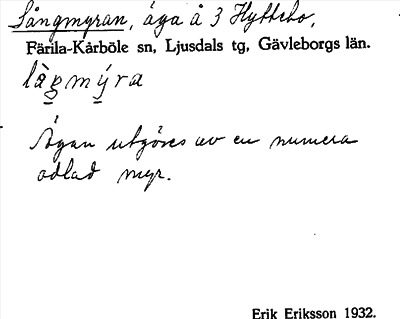 Långmyran, äga å 3 Hyttebo,
Färila-Kårböle sn, Ljusdals tg, Gävleborgs län.
Ägan utgöres av en numera
odlad myr.
Erik Eriksson 1932.